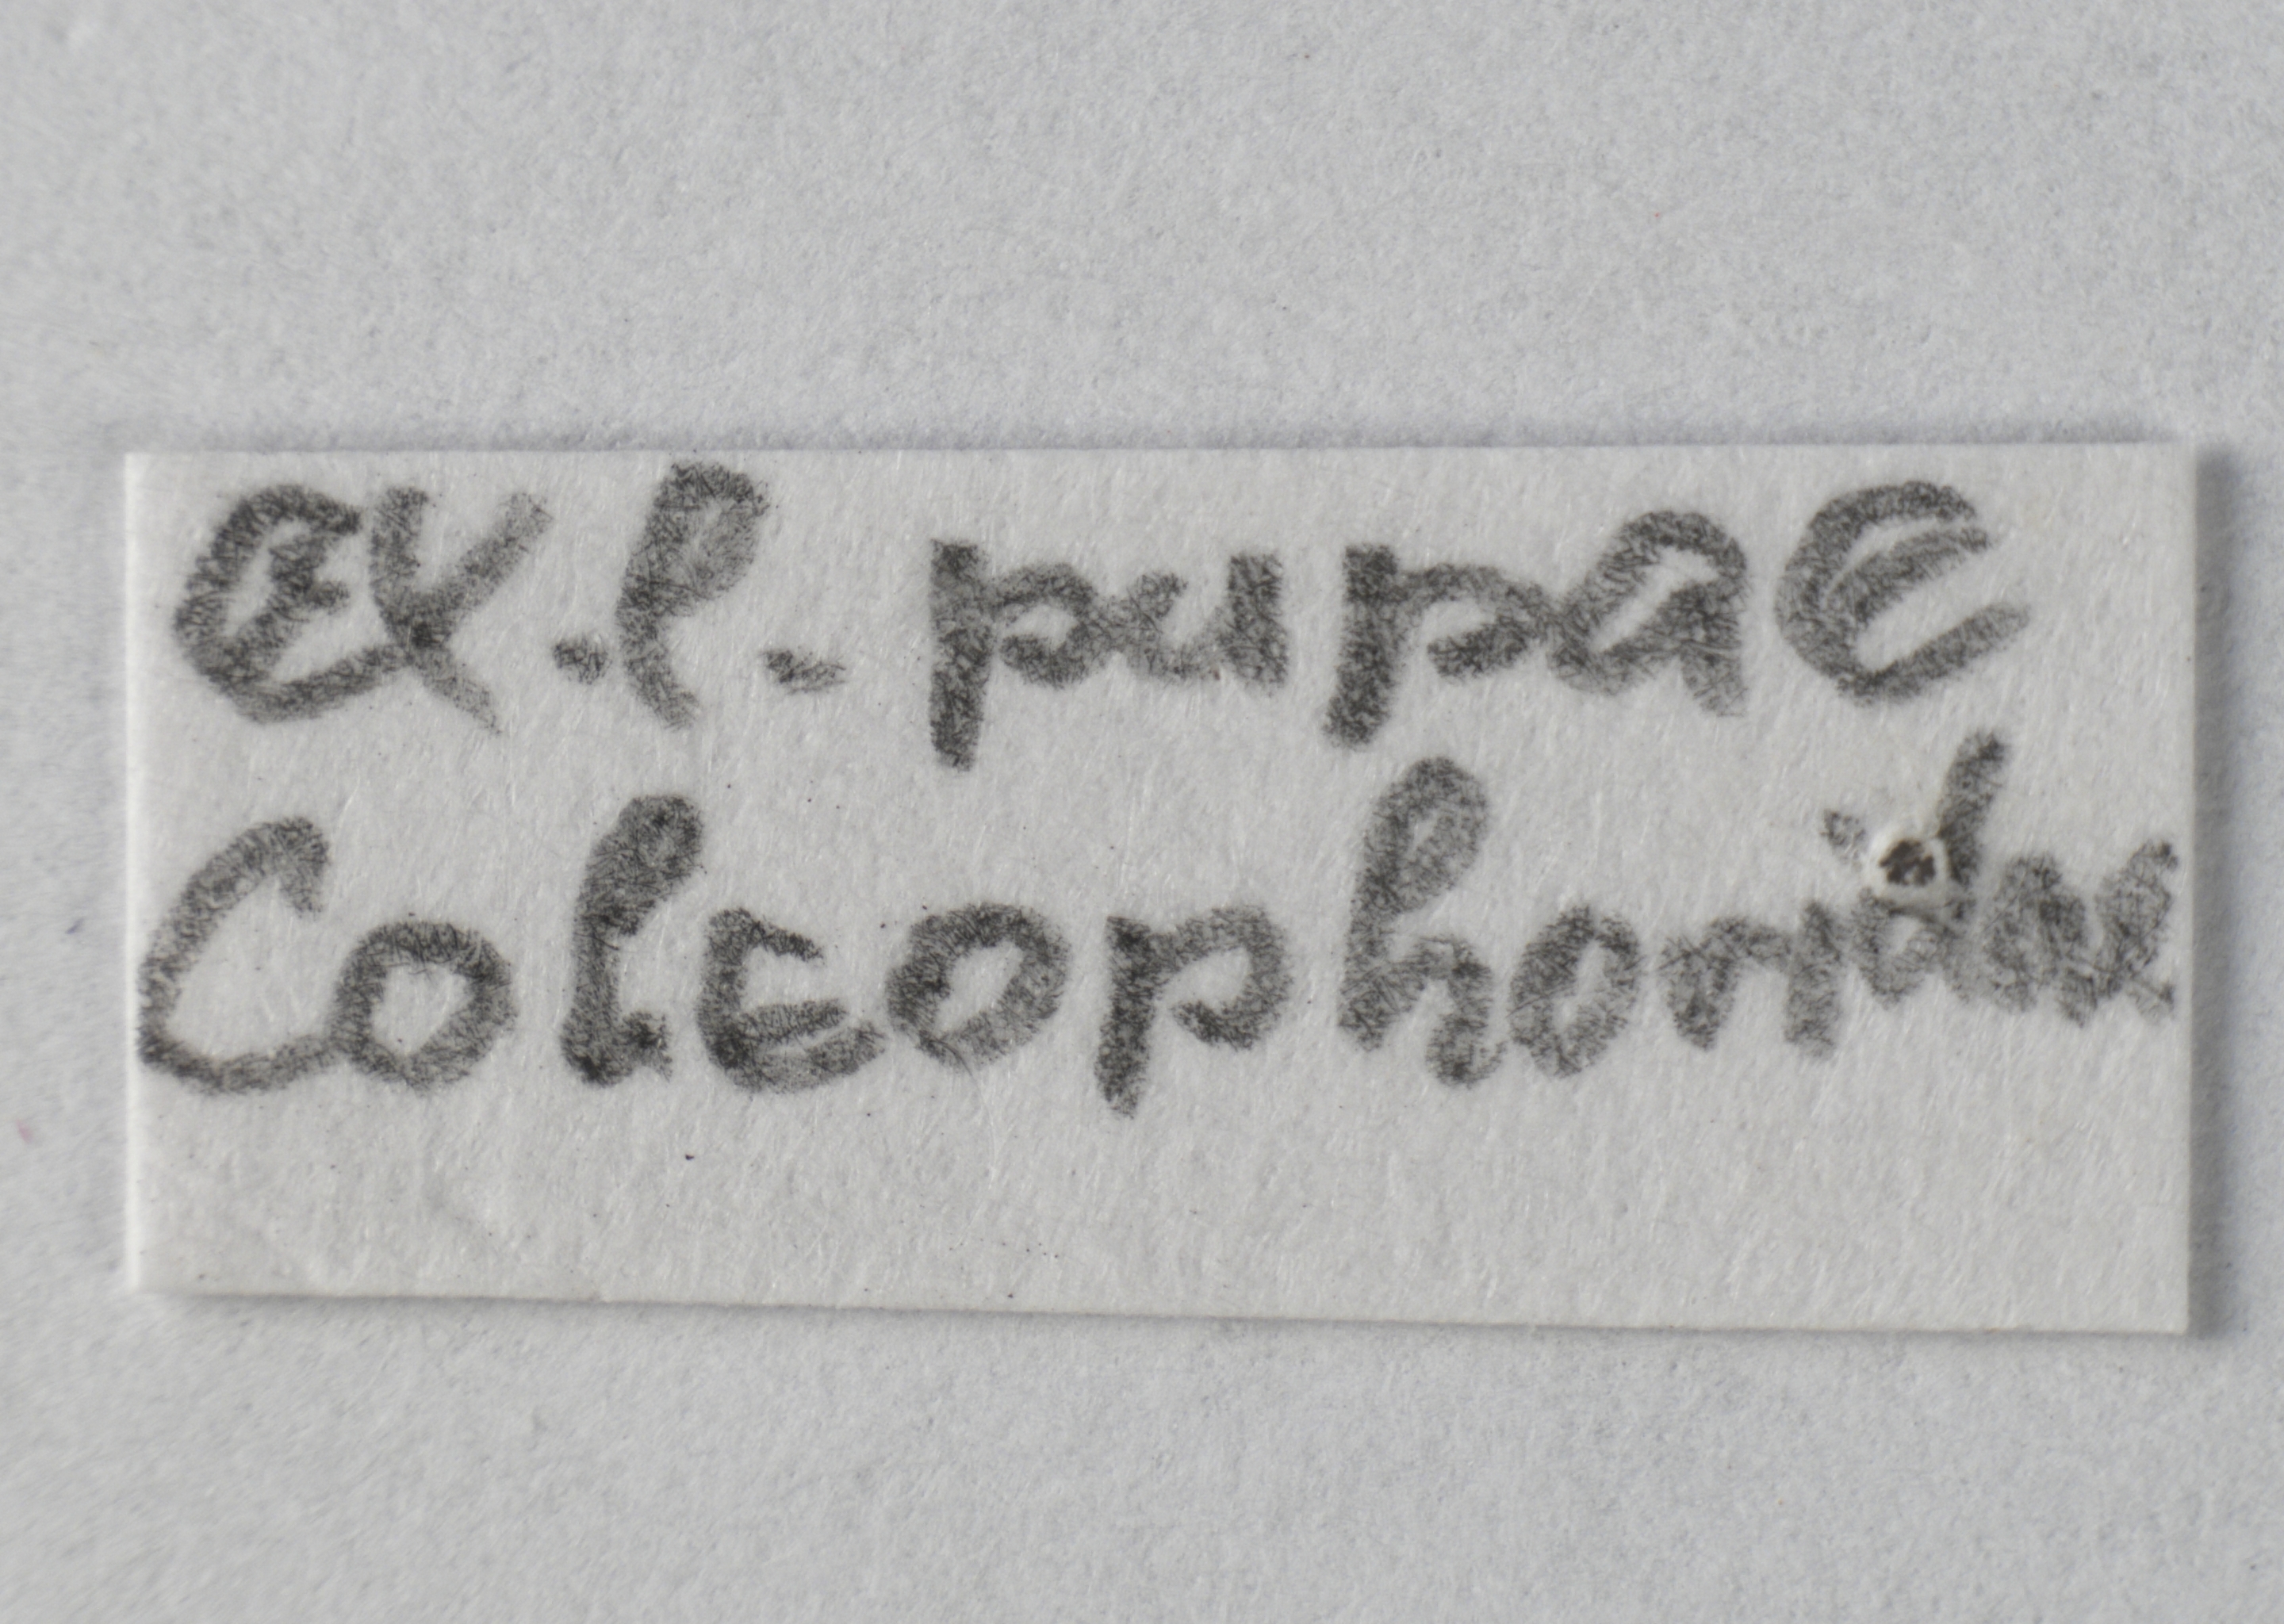 Ex.l. pupae
Coleophoridae